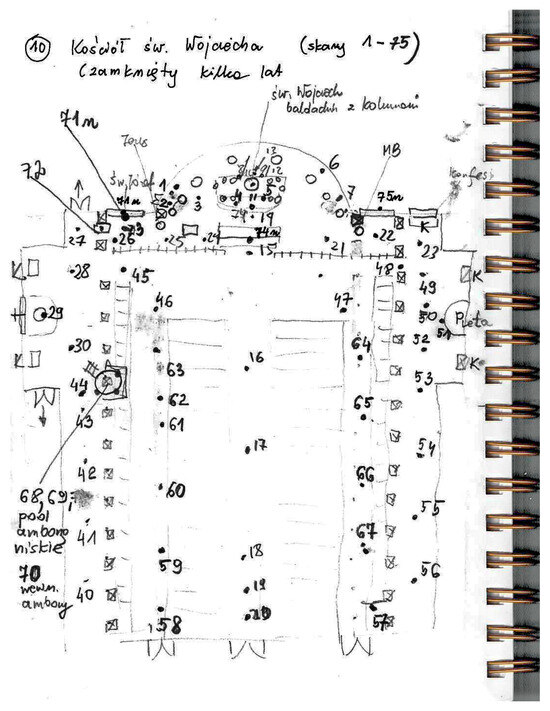 10 Kościół św. Wojciecha (skany 1-75)
Czamknięty kilka lat
św. Wojciech
baldachim z kolumnami
71m
72
św. Józef
71m
MB
75m
6
7
1
2
3
13
12
5
11
74
19
74m
15
27
26
73
25
24
21
22
K
23
28
45
48
K
49
29
46
47
50
Pieta
51
30
16
64
52
K
44
63
53
62
65
43
61
17
54
42
60
66
68, 69,
pod
amboną
niskie
41
67
55
59
18
70
wewn.
ambony
40
19
56
58
57